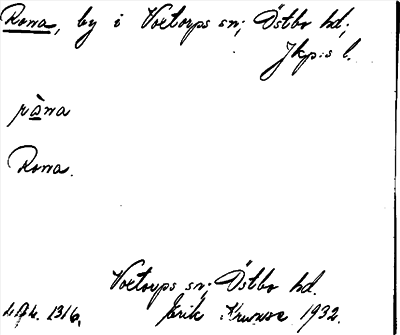 Rowa, by i Voxtorps sn; Östbo hd;
Jkp:s l.
ròwa
Rowa.
Voxtorps sn; Östbo hd.
1316. Erik 1932.